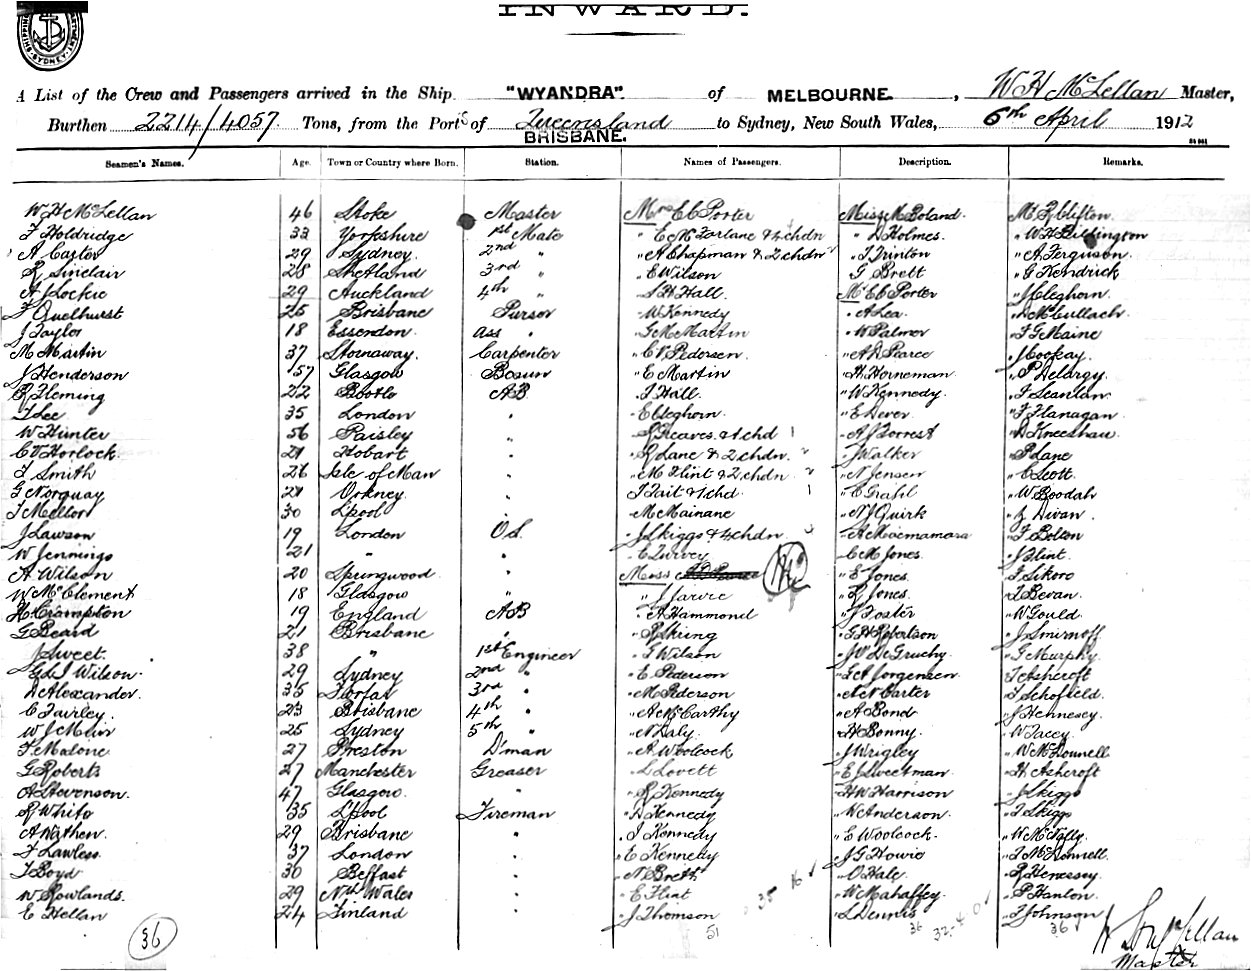 INWARD.
A List of the Crew and Passengers arrived in the Ship "WYANDRA" of MELBOURNE, W H McLellan Master,
Burthen 2214/4057 Tons, from the Ports of Queensland to Sydney, New South Wales, 6th April 1912
BRISBANE.
Seamen's Names. Age. Town or Country where Born. Station. Names of Passengers. Description. Remarks.
W H McLellan 46 Stoke Master Mrs E C Porter Miss M Boland Mr R Clifton
F Holdridge 32 Yorkshire 1st Mate " E McFarlane & 4 chdn " D Holmes. " W H Bilkington
A Carter 29 Sydney. 2nd " " A Chapman & 2 chdn " J Trinton " A Ferguson.
R Sinclair 28 Shetland 3rd " " E Wilson G Brett " G Kendrick
A J Lockie 29 Auckland 4th " " S H Hall. Mr E C Porter " J Cleghorn.
F Quelhurst 25 Brisbane Purser " W Kennedy " A Lea. " McCullach.
J Taylor 18 Essendon. Ass " " M Martin " W Palmer " F G Maine
M Martin 37 Stornaway. Carpenter " C V Pedersen. " A D Pearce " J Cookay.
J Henderson 57 Glasgow Bosun " E Martin " H Horneman " P Delargy.
R Fleming 22 Bootle A B " J Hall. " W Kennedy. " F Scanlan
T Lee 35 London " " E Cleghorn. " E Dever. " F Flanagan
W Hunter 56 Paisley " " R Greaves & 1 chd 1 " A J Forrest " D Kneeshaw
C V Horlock. 21 Hobart " " R Lane & 2 chdn. " J Walker " P Lane
F Smith 26 Isle of Man " " M Flint & 2 chdn " N Jensen " C Scott.
G Norquay 21 Orkney. " J Tait & 1 chd 1 " E Grahl " W Boodah
J Mellor 30 L'pool " " M Mainane " N J Quirk " Divan
J Lawson 19 London O.S. " J Skiggs & 4 chdn " A Macnamara " F Bolton
W Jennings 21 " " " E Turvey " C M Jones. " J Flint.
A Wilson 20 Springwood " Miss " E Jones. " F Sikoro
W McClement 18 Glasgow " " J Jarvie " R Jones. " J Bevan.
H Crampton 19 England A B " A Hammond " J Foster " W Gould
G Beard 21 Brisbane " " R Skring " G H Robertson " J Smirnoff
J Sweet. 38 " 1st Engineer " G Wilson " J W De Gruchy. " G Murphy.
G D J Wilson 29 Sydney 2nd " " E Pederson " A Jorgensen " Ashcroft
D Alexander. 35 Forfar 3rd " " M Pederson " A V Carter " J Schofield.
C Fairley. 23 Brisbane 4th " " A McCarthy " A Bond " J Hennesey.
W J Muir 25 Sydney 5th " " N Daly. " H Bonny. " W Tacey.
F Malone 27 Preston D'man " A Woolcock " J Wrigley " W McDonnell
G Roberts 27 Manchester Greaser " L Lovett " E J Sweetman. " H Ashcroft
A Stevenson. 47 Glasgow. " " R Kennedy " H W Harrison " J Skiggs
R White 35 L'pool Fireman " D Kennedy " W Anderson. " J Skiggs
A Wathen. 29 Brisbane " " J Kennedy " E Woolcock. " W McTaffy
F Lawless. 37 London " " E Kennedy " J G Howie " J McDonnell.
J Boyd 30 Belfast " " N Breth " O Hale. " R Henessy.
W Rowlands. 29 Nth Wales " " E Flint " W Mahaffey. " P Hanlon.
E Hellan 24 Finland " " J Thomson " L Dennis " J Johnson
36 51 35 16 36 32 4 0 36
W H McLellan
Master